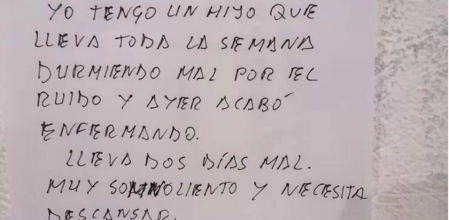 YO TENGO UN HIJO QUE
LLEVA TODA LA SEMANA
DURMIENDO MAL POR EL
RUIDO Y AYER ACABÓ
ENFERMANDO.
LLEVA DOS DÍAS MAL.
MUY SOMNOLIENTO Y NECESITA
DESCANSAR.